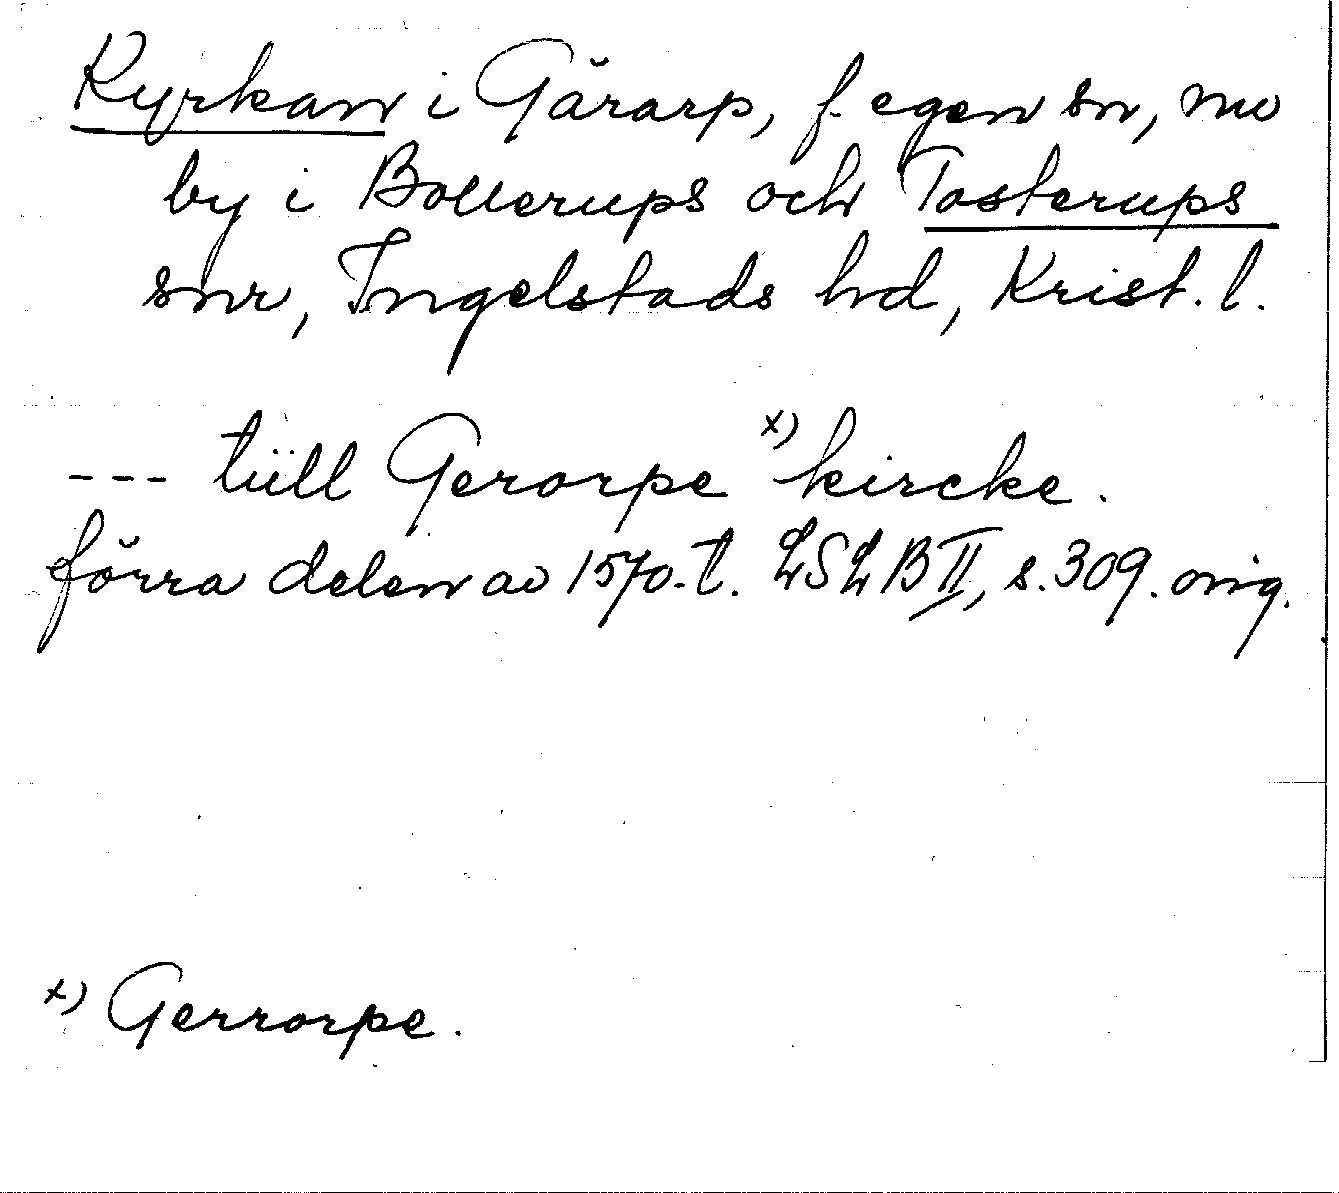 Kyrkan i Gärarp, f. egen sn, nu
by i Bollerups och Tosterups
snr, Ingelstads hd, Krist. l.
--- tüll Gerorpe x) kircke.
förra delen av 1570-t. LSLB II, s. 309. orig.
x) Gerrorpe.